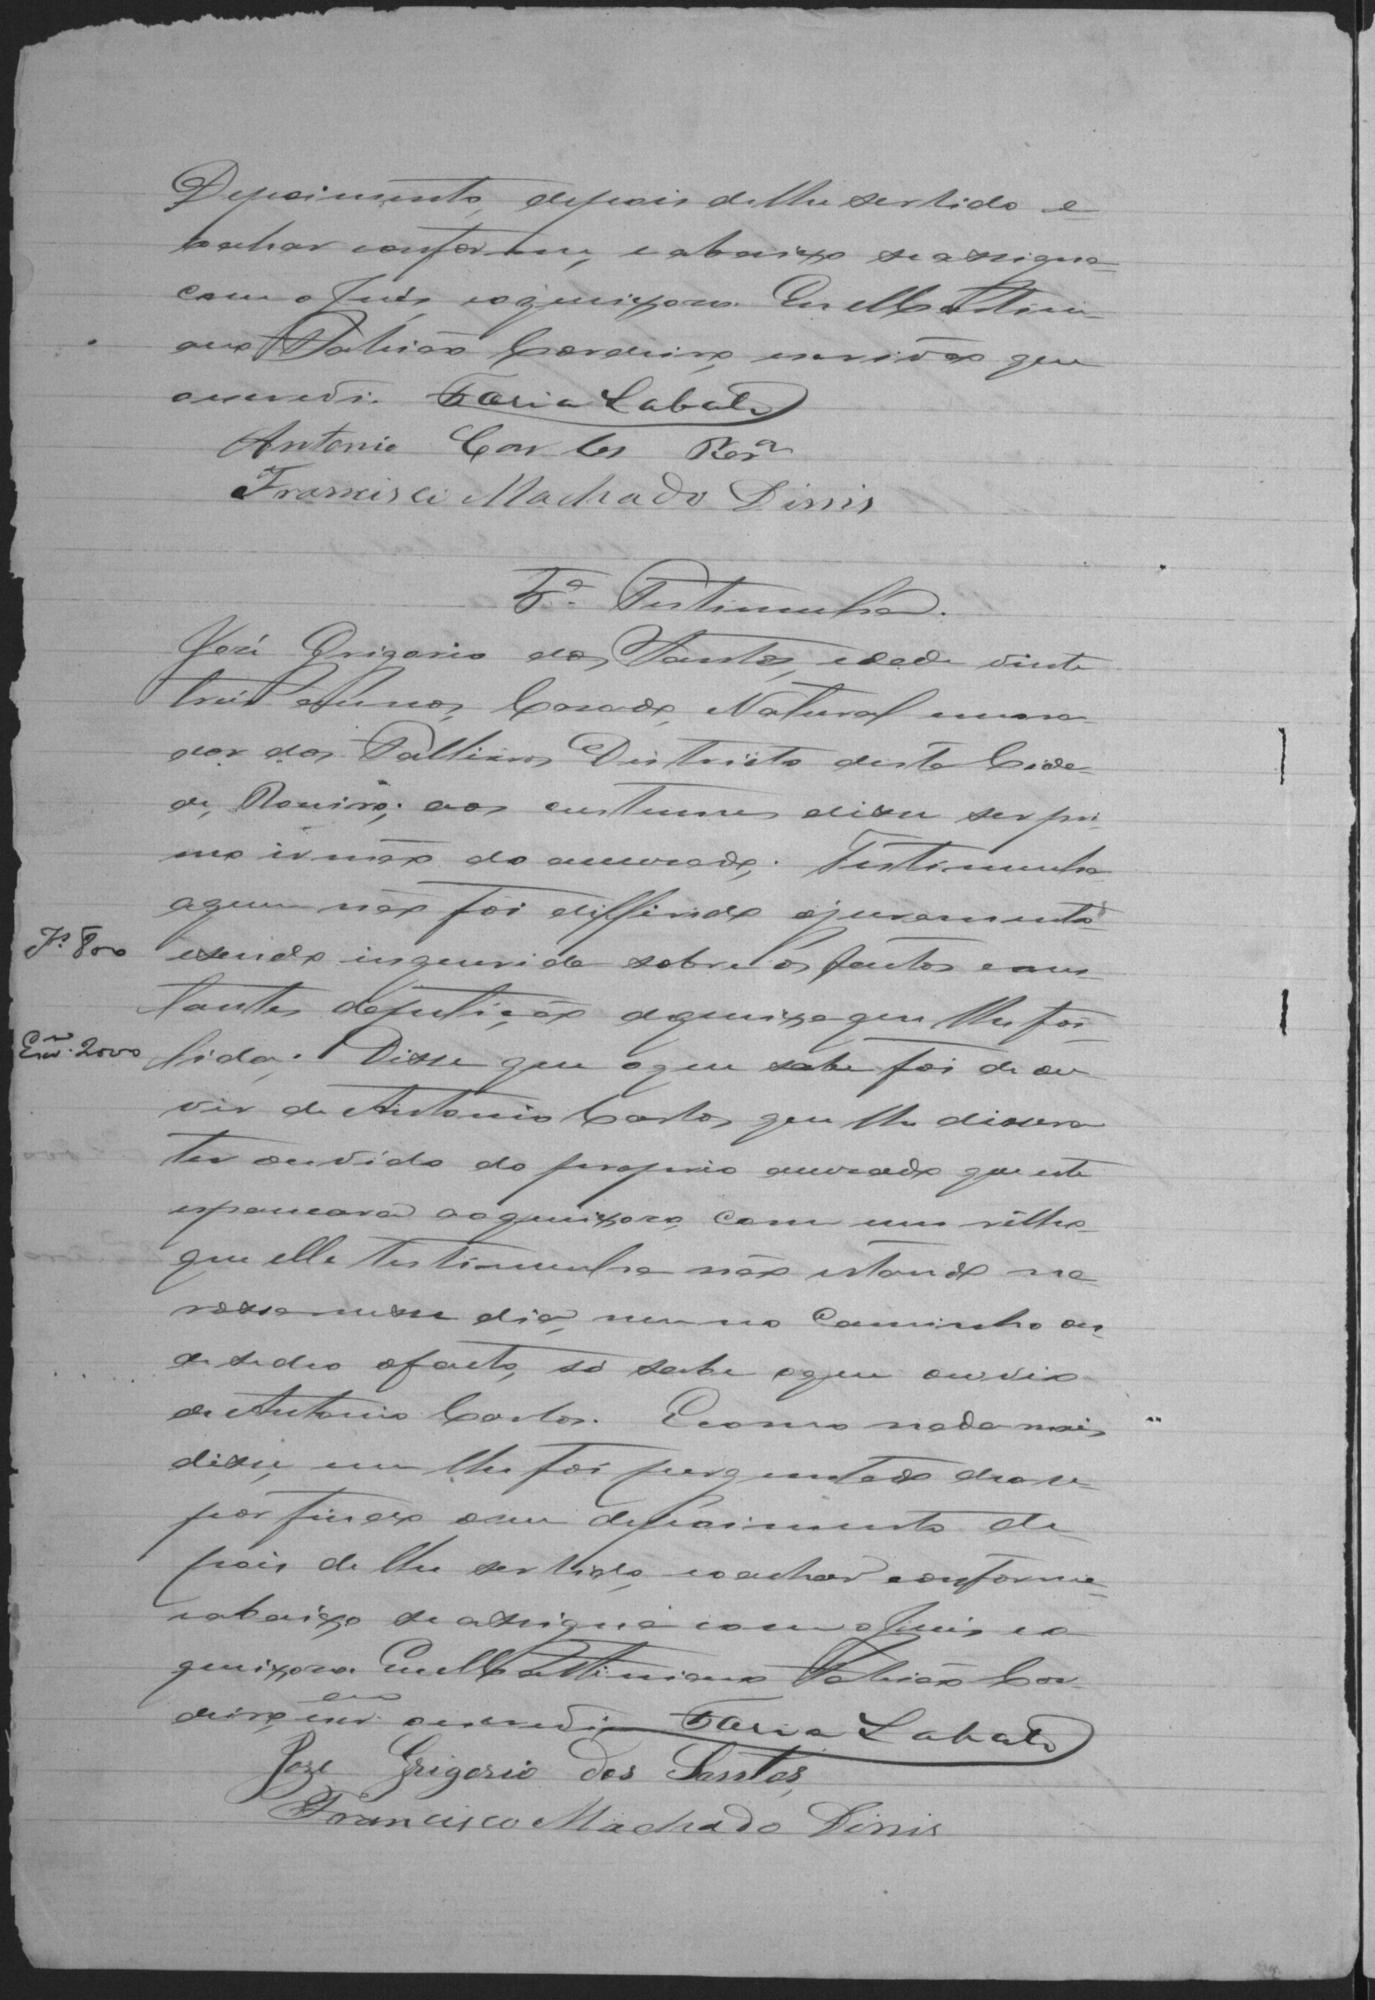 Depoimento, depois de lhe ser lido e
achar conforme, e abaixo se assigna
com o Juis, e o queixoso. Eu
Fabião Cordeiro, escrivão que
escrevi. Faria Labato
Antonio Carlos Roza
Francisco Machado Dinis
5ª. Testimunha.
José Grigorio dos Santos, edade vinte
tres annos, Casado, Natural e mora
dor dos Districto desta Cida
de, aos custumes disse ser pri
mo irmão do accusado. Testimunha
a quem não foi differido o juramento
J.s 800
e sendo inquerida sobre os factos cons
tantes da petição de queixa que lhe foi
Escr.m 2000
lida. Disse que o que sabe foi de ou
vir de Antonio Carlos, que lhe dissera
ter ouvido do proprio accusado que este
espancara ao queixoso com um rêlho
que elle testimunha não estando na
nesse dia, nem no Caminho on
de se deo o facto, só sabe o que ouvio
de Antonio Carlos. E como nada mais
disse, nem lhe foi perguntado deo se
por findo o seu depoimento de
pois de lhe ser lido, e o achar conforme
e abaixo se assigna com o Juis e o
queixoso. Eu Fabião Cor
deiro, escrm o escrevi Faria Labato
Jose Grigorio dos Santos,
Francisco Machado Dinis